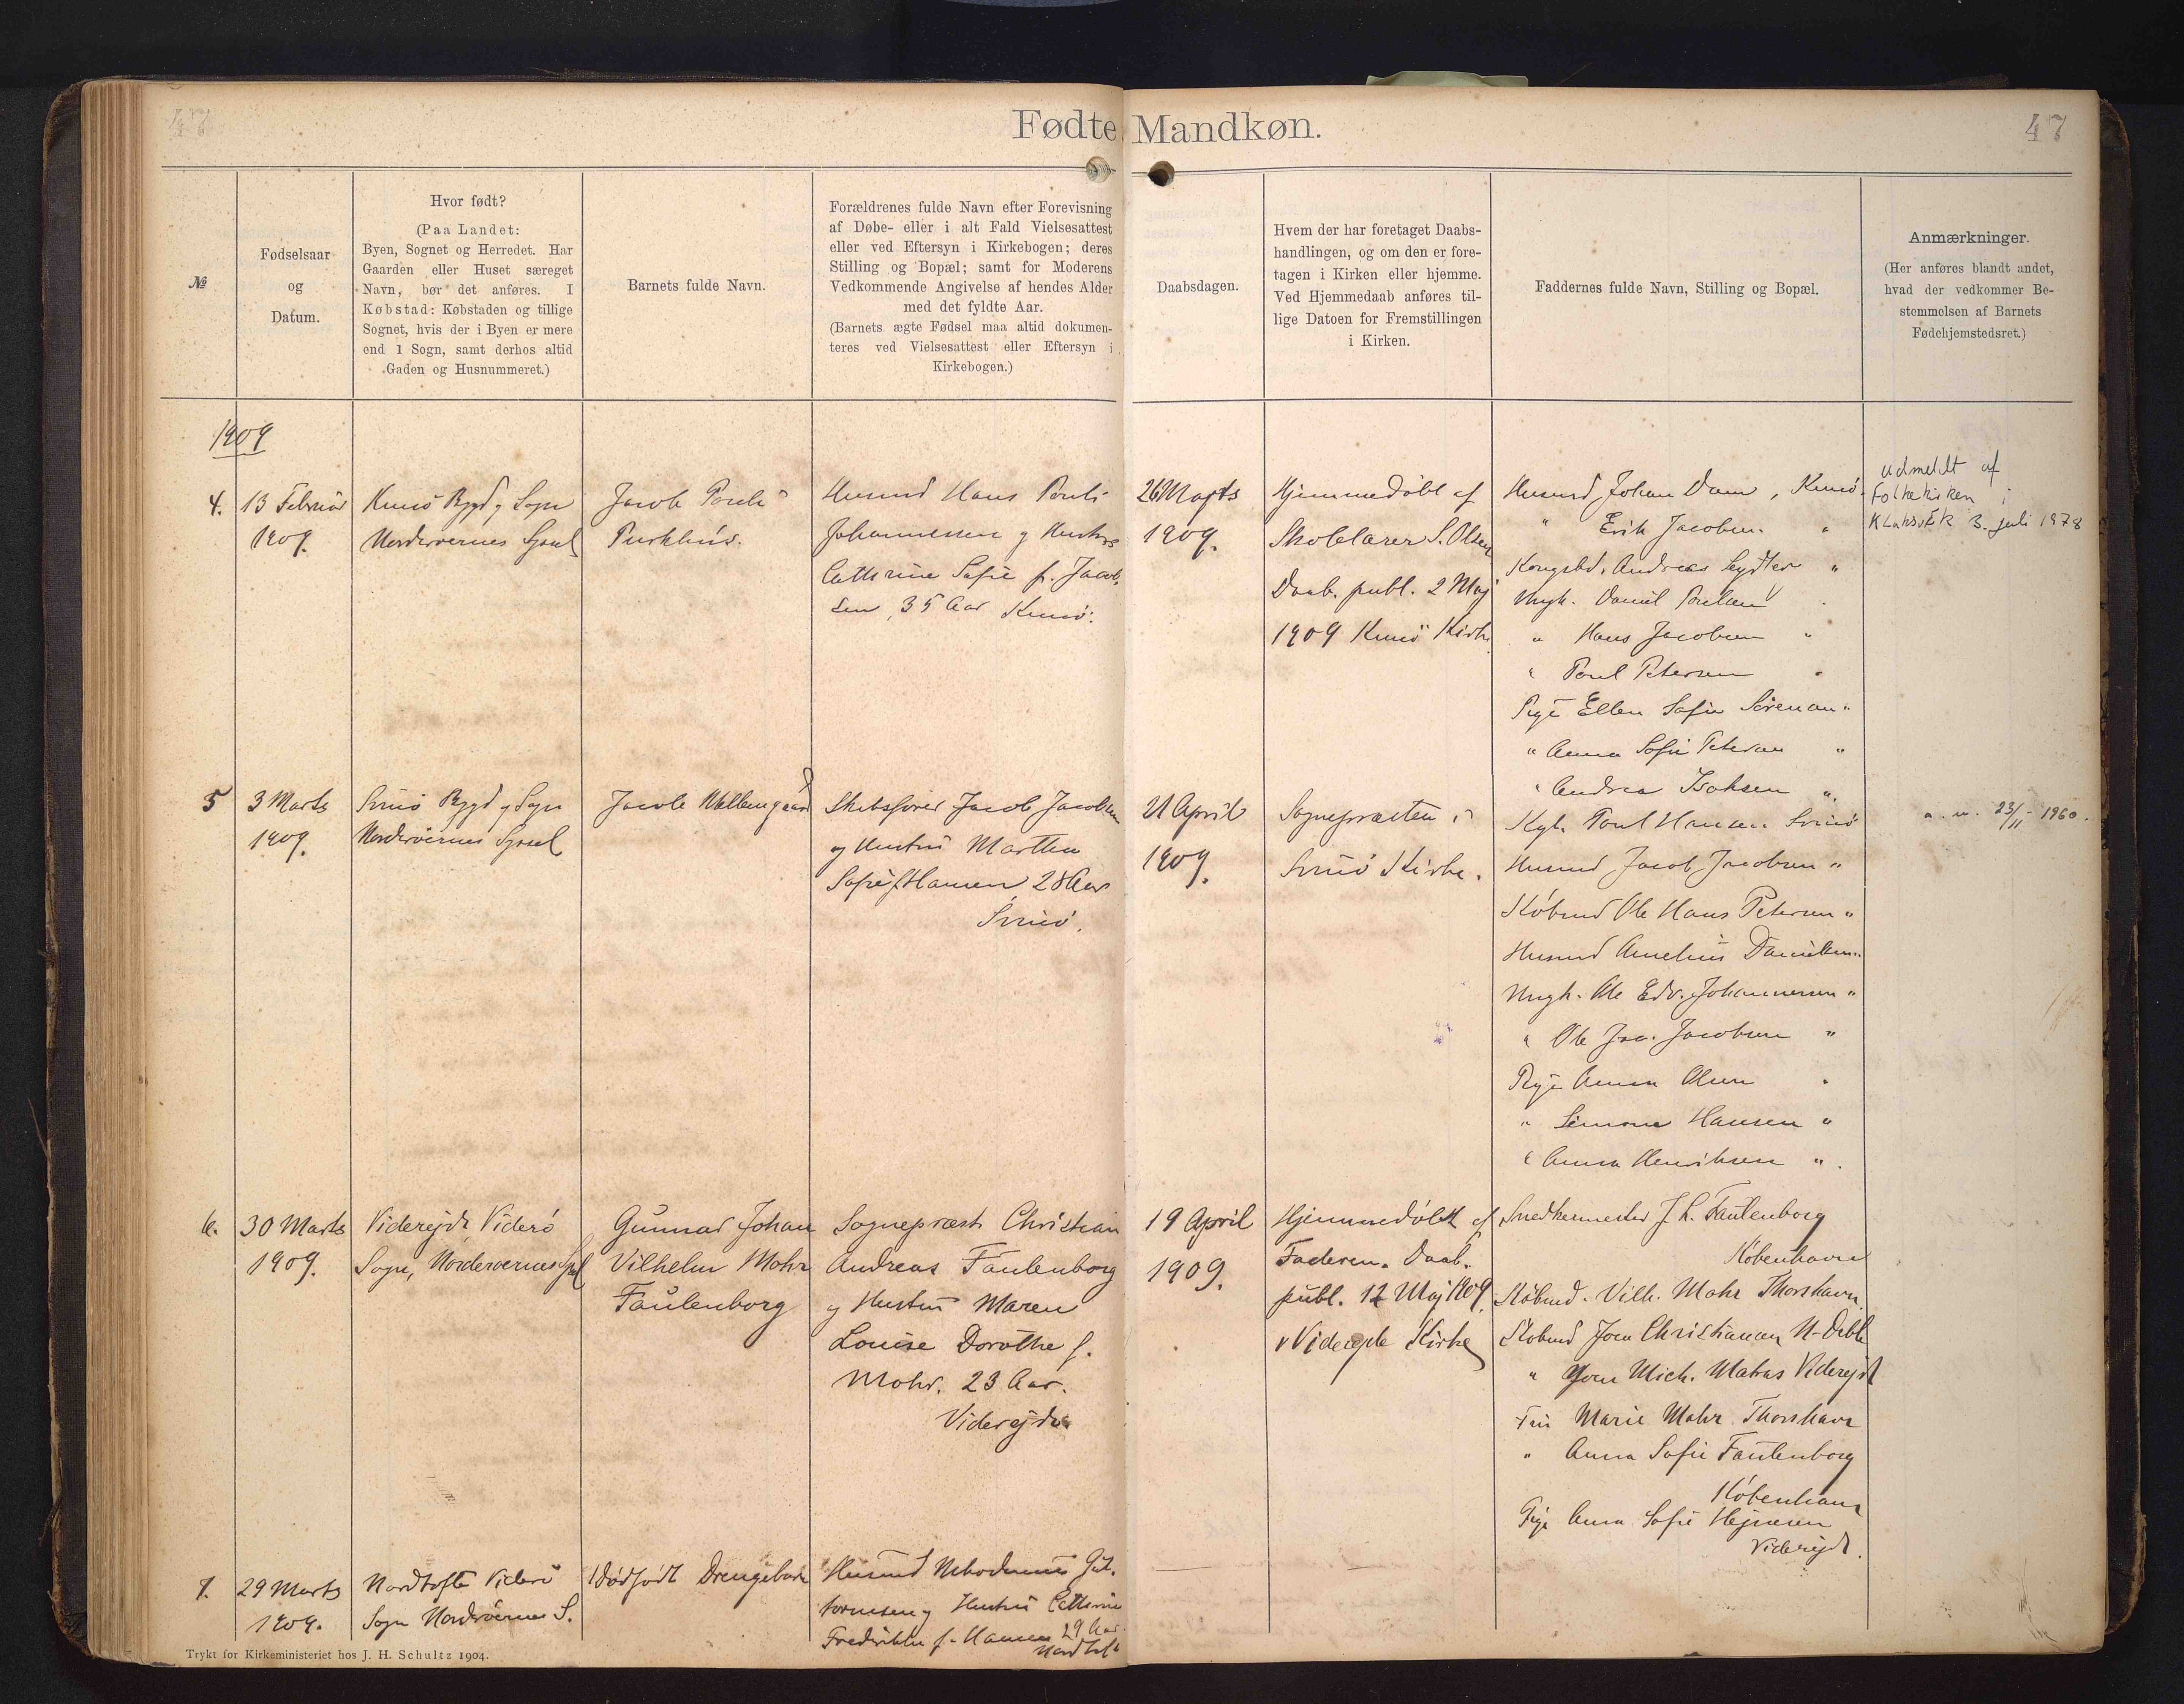 Fødte Mandkøn.
47
№
Fødselsaar
og
Datum.
Hvor født?
(Paa Landet:
Byen, Sognet og Herredet. Har
Gaarden eller Huset særeget
Navn, bør det anføres. I
Købstad: Købstaden og tillige
Sognet, hvis der i Byen er mere
end 1 Sogn, samt derhos altid
Gaden og Husnummeret.)
Barnets fulde Navn.
Forældrenes fulde Navn efter Forevisning
af Døbe- eller i alt Fald Vielsesattest
eller ved Eftersyn i Kirkebogen; deres
Stilling og Bopæl; samt for Moderens
Vedkommende Angivelse af hendes Alder
med det fyldte Aar.
(Barnets ægte Fødsel maa altid dokumen-
teres ved Vielsesattest eller Eftersyn i
Kirkebogen.)
Daabsdagen.
Hvem der har foretaget Daabs-
handlingen, og om den er fore-
tagen i Kirken eller hjemme.
Ved Hjemmedaab anføres til-
lige Datoen for Fremstillingen
i Kirken.
Faddernes fulde Navn, Stilling og Bopæl.
Anmærkninger.
(Her anføres blandt andet,
hvad der vedkommer Be-
stemmelsen af Barnets
Fødehjemstedsret.)
1909
4.
13 Februar
1909.
Kunø Bygd og Sogn
Norderøernes Syssel
Jacob Pauli
Purkhús.
Husmd Hans Pauli
Johannessen og Hustru
Cathrine Sofie f. Jacob-
sen, 35 Aar Kunø.
26 Marts
1909.
Hjemmedøbt af
Skolelærer S. Olsen
Daab. publ. 2 Maj
1909 Kunø Kirke
Husmd Johan Dam, Kunø
" Erik Jacobsen "
Kongsbd. Andreas Lydter "
Ungk. Daniel Poulsen "
" Hans Jacobsen "
" Poul Petersen "
Pige Ellen Sofie Sørensen "
" Anna Sofie Petersen "
" Andrea Isaksen "
Udmeldt af
folkekirken i
Klaksvik 3. juli 1978
5
3 Marts
1909.
Svinø Bygd og Sogn
Norderøernes Syssel
Jacob Wellemgaard
Skibsfører Jacob Jacobsen
og Hustru Martha
Sofie f. Hansen 28 Aar
Svinø.
21 April
1909.
Sognepræsten i
Svinø Kirke.
Poul Hansen Svinø
Husmd Jacob Jacobsen "
Købmd Ole Hans Petersen "
Husmd Danielsen "
Ungk. Ole Edv. Johannesen "
" Ole Jac. Jacobsen "
Pige Anna Olsen "
" Simona Hansen "
" Anna Henriksen "
a. n. 23/11 - 1960.
6.
30 Marts
1909.
Viderejde, Viderø
Sogn, Norderøernes Sysl
Gunnar Johan
Vilhelm Mohr
Faulenborg
Sognepræst Christian
Andreas Faulenborg
og Hustru Maren
Louise Dorothe f.
Mohr. 23 Aar.
Viderejde
19 April
1909.
Hjemmedøbt af
Faderen. Daab.
publ. 12 Maj 1909.
i Viderejde Kirke
Snedkermester J. C. Faulenborg
København
Købmd. Vilh. Mohr Thorshavn.
Købmd Joen Christiansen N-Deble
" Joen Mich. Matras Viderejd
Fru Marie Mohr Thorshavn
" Anna Sofie Faulenborg
København
Pige Anna Sofie Hejnesen
Viderejd.
7.
29 Marts
1909.
Nordtofte Viderø
Sogn Norderøernes S.
Dødfødt Drengebarn
Husmd Gut-
tormsen og Hustru Cathrine
Fredrikke f. Hansen 29 Aar
Nordtofte
Trykt for Kirkeministeriet hos J. H. Schultz 1904.